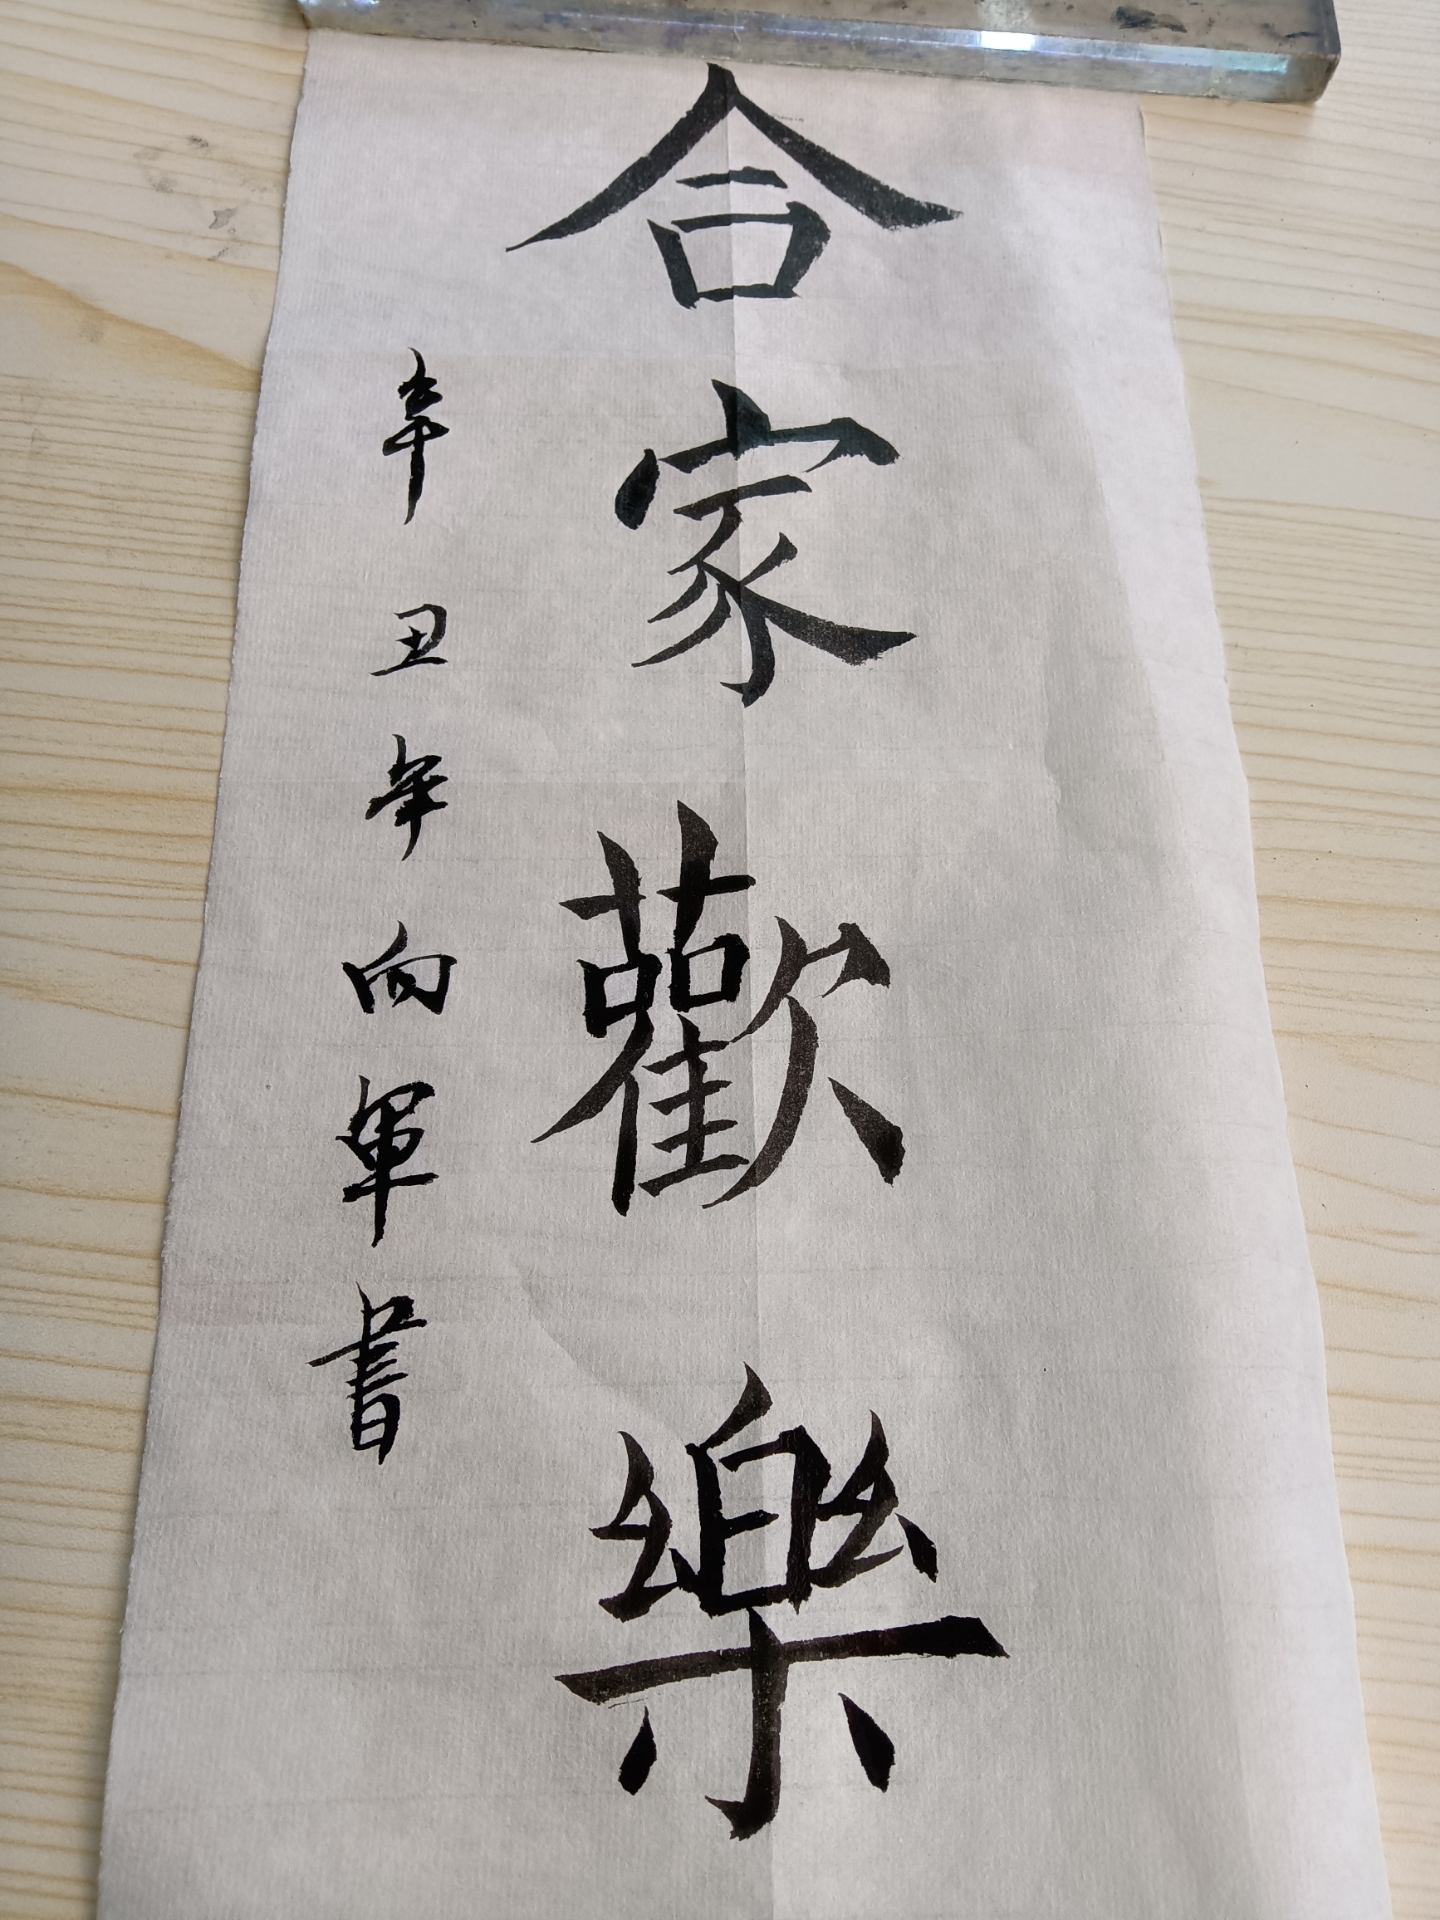 合家歡樂
辛丑年向軍書